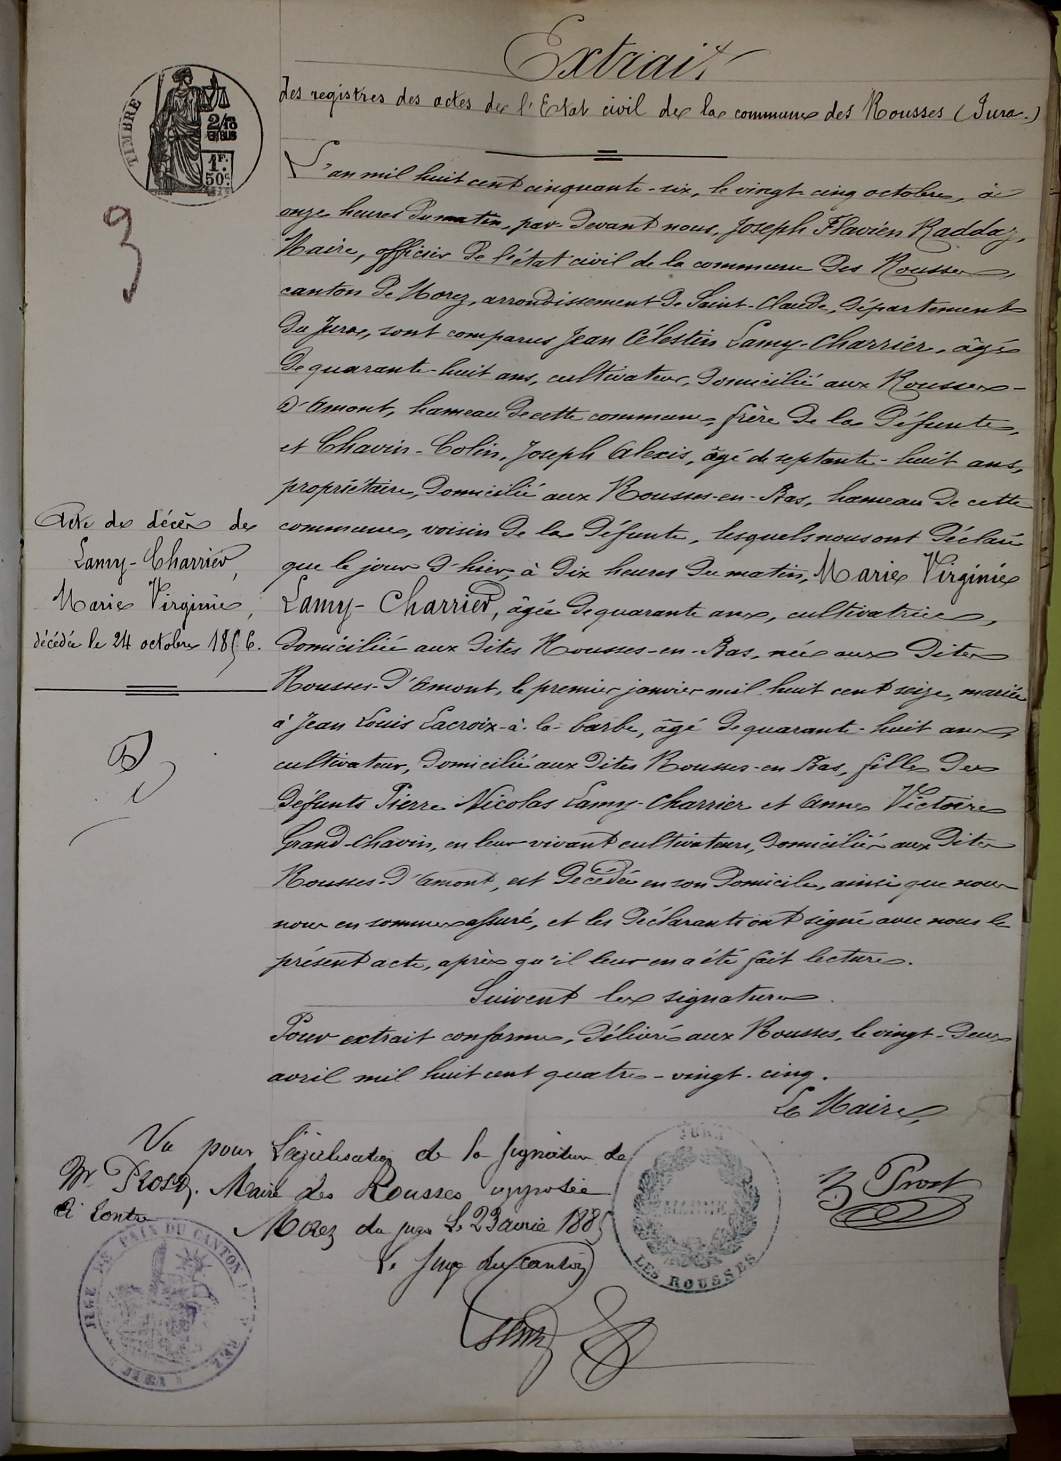 Extrait
des registres des actes de l'Etat civil de la commune des Rousses (Jura.)
TIMBRE
2/10
EN SUS
1F.
50c
L'an mil huit cent cinquante-six, le vingt cinq octobre, à
onze heures du matin, par devant nous, Joseph Flavien Raddaz,
Maire, officier de l'état civil de la commune des Rousses,
canton de Morez, arrondissement de Saint-Claude, département
du Jura, sont comparus Jean Célestin Lamy-Charrier, âgé
de quarante-huit ans, cultivateur, domicilié aux Rousses-
d'Amont, hameau de cette commune, frère de la défunte,
et Chavin-Colin, Joseph Alexis, âgé de septante-huit ans,
propriétaire, domicilié aux Rousses-en-Bas, hameau de cette
commune, voisin de la défunte, lesquels nous ont déclaré
que le jour d'hier, à dix heures du matin, Marie Virginie
Lamy-Charrier, âgée de quarante ans, cultivatrice,
domiciliée aux dites Rousses-en-Bas, née aux dites
Rousses-d'Amont, le premier janvier mil huit cent seize, mariée
à Jean Louis Lacroix-à-la-barbe, âgé de quarante-huit ans,
cultivateur, domicilié aux dites Rousses-en Bas, fille des
défunts Pierre Nicolas Lamy-Charrier et Anne Victoire
Grand-Chavin, en leur vivant cultivateurs, domiciliés aux dites
Rousses-d'Amont, est décédée en son domicile, ainsi que nous
nous en sommes assuré, et les déclarants ont signé avec nous le
présent acte, après qu'il leur en a été fait lecture.
Suivent les signatures.
Pour extrait conforme, délivré aux Rousses, le vingt-deux
avril mil huit cent quatre-vingt-cinq.
Le Maire,
Acte de décès de
Lamy-Charrier,
Marie Virginie,
décédée le 24 octobre 1856.
3
Vu pour Légalisation de la signature de
Mr Prost, Maire des Rousses apposée
ci contre
Morez du Jura le 23 avril 1885
Le Juge du canton
Prost
JURA
MAIRIE
LES ROUSSES
DE PAIX DU CANTON